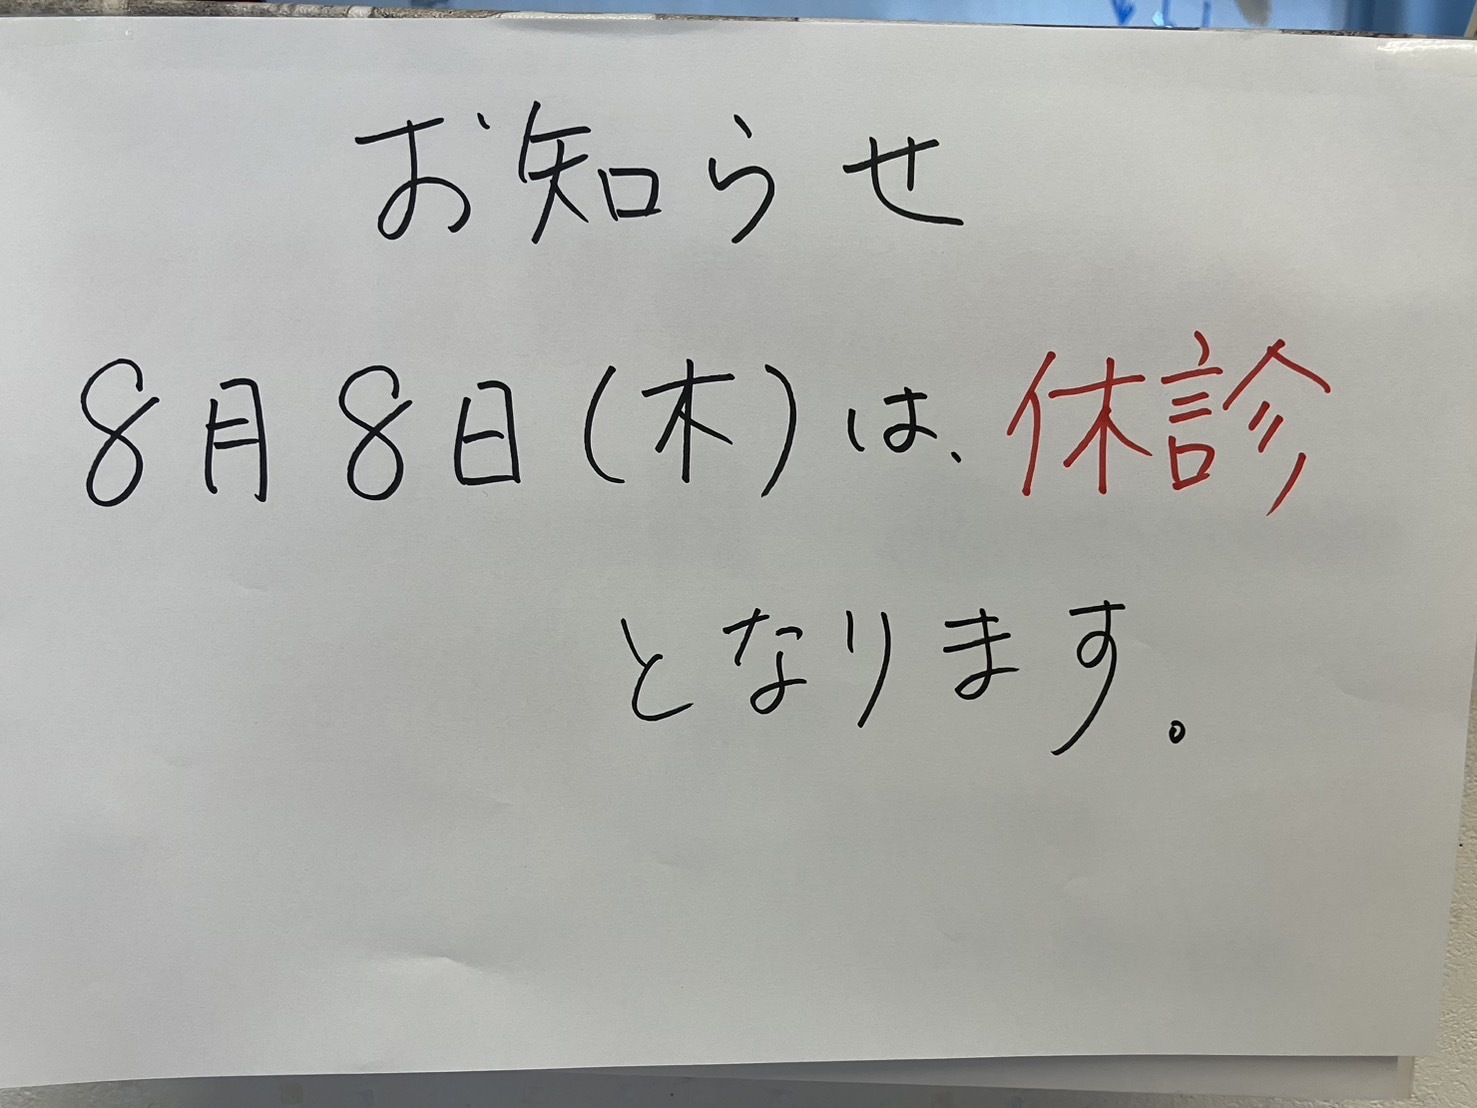 お知らせ
8月8日(木)は、休診
となります。